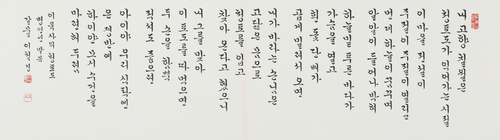 내 고장 칠월은
청포도가 익어가는 시절
이 마을 전설이
주절이주절이 열리고
먼 데 하늘이 꿈꾸며
알알이 들어와 박혀
하늘 밑 푸른 바다가
가슴을 열고
흰 돛단배가
곱게 밀려서 오면
내가 바라는 손님은
고달픈 몸으로
청포를 입고
찾아온다고 했으니
내 그를 맞아
이 포도를 따 먹으면
두 손은 함뿍
적셔도 좋으련
아이야 우리 식탁엔
은쟁반에
하이얀 모시 수건을
마련해 두렴
이육사의 청포도